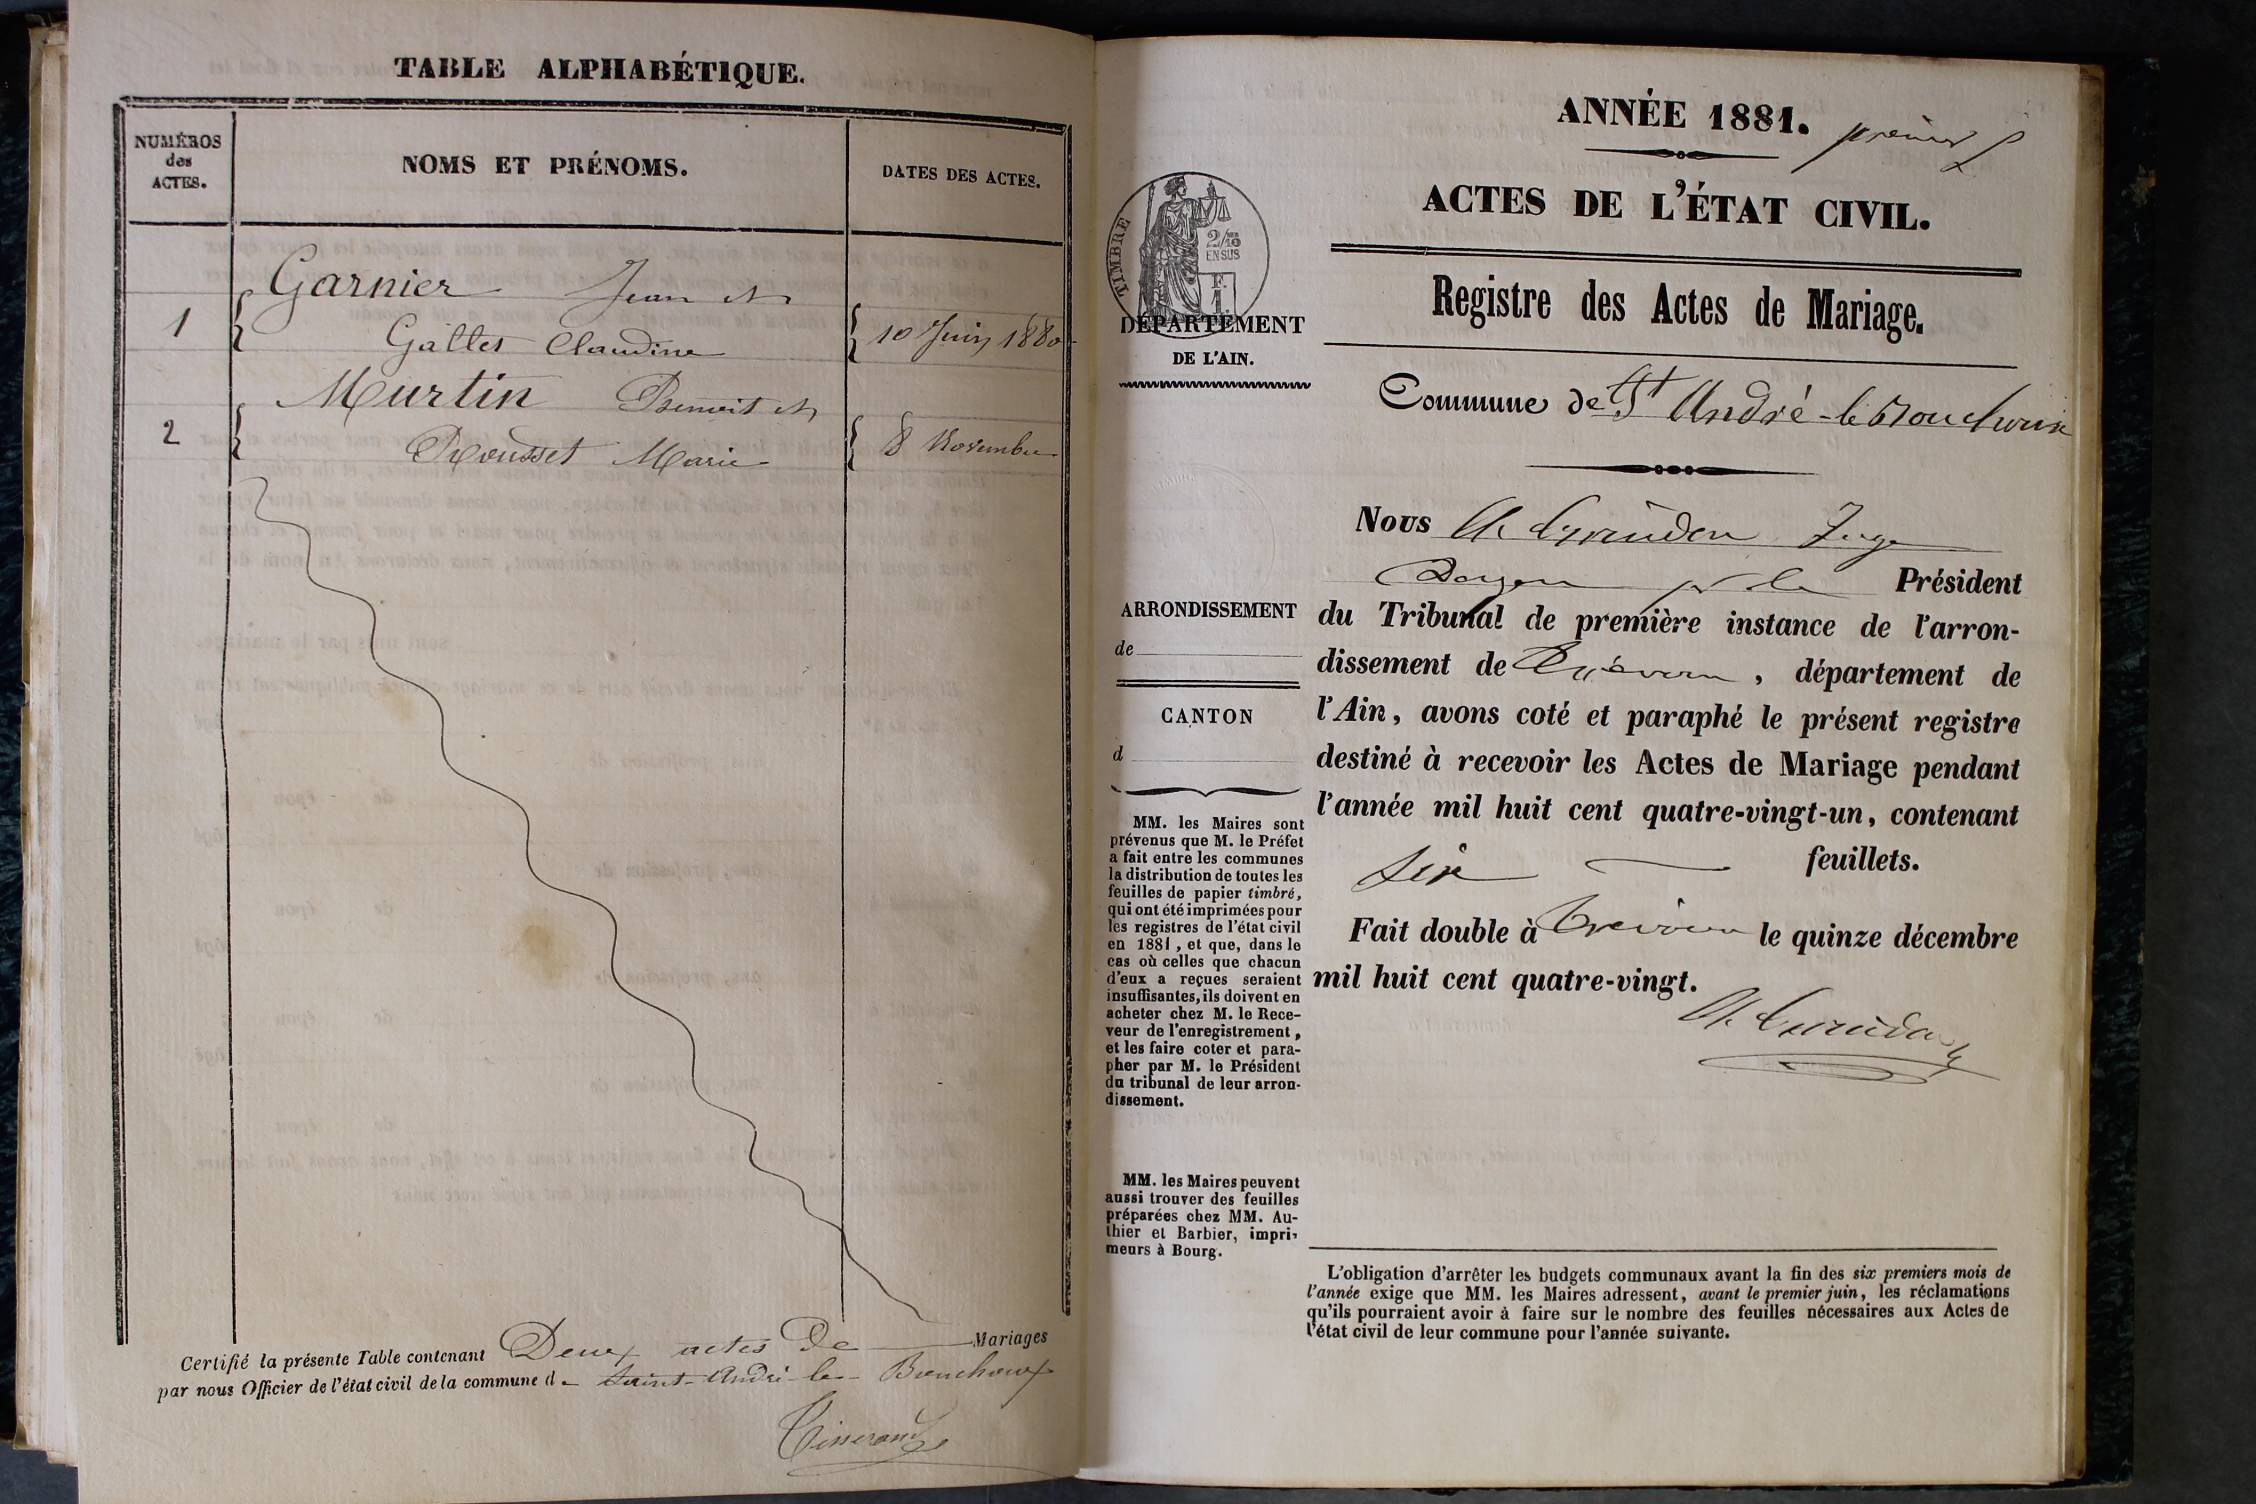 TABLE ALPHABÉTIQUE.
NUMÉROS
des
ACTES.
NOMS ET PRÉNOMS.
DATES DES ACTES.
Garnier Jean et
1
Gallet Claudine
10 Juin 1880
Murtin Benoit et
2
Rousset Marie
8 Novembre
Certifié la présente Table contenant Deux actes de Mariages
par nous Officier de l'état civil de la commune d Saint-André-le-Bouchoux
Tisserand
ANNÉE 1881.
premier
ACTES DE L'ÉTAT CIVIL.
TIMBRE
2/10
EN SUS
F.
1.
DÉPARTEMENT
DE L'AIN.
Registre des Actes de Mariage.
Commune de St André-le-Bouchoux
Nous Juge
Doyen pr le Président
du Tribunal de première instance de l'arron-
dissement de Trévoux, département de
l'Ain, avons coté et paraphé le présent registre
destiné à recevoir les Actes de Mariage pendant
l'année mil huit cent quatre-vingt-un, contenant
six feuillets.
Fait double à Trévoux le quinze décembre
mil huit cent quatre-vingt.
ARRONDISSEMENT
de
CANTON
d
MM. les Maires sont
prévenus que M. le Préfet
a fait entre les communes
la distribution de toutes les
feuilles de papier timbré,
qui ont été imprimées pour
les registres de l'état civil
en 1881, et que, dans le
cas où celles que chacun
d'eux a reçues seraient
insuffisantes, ils doivent en
acheter chez M. le Rece-
veur de l'enregistrement,
et les faire coter et para-
pher par M. le Président
du tribunal de leur arron-
dissement.
MM. les Maires peuvent
aussi trouver des feuilles
préparées chez MM. Au-
thier et Barbier, impri-
meurs à Bourg.
L'obligation d'arrêter les budgets communaux avant la fin des six premiers mois de
l'année exige que MM. les Maires adressent, avant le premier juin, les réclamations
qu'ils pourraient avoir à faire sur le nombre des feuilles nécessaires aux Actes de
l'état civil de leur commune pour l'année suivante.